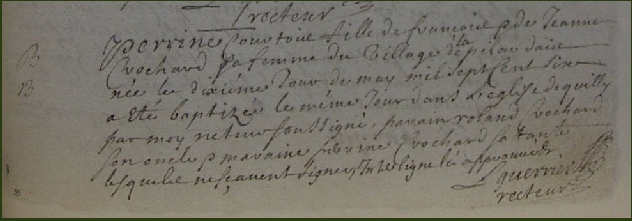 recteur
B
B
Perrine Courtoise fille de françois & de Jeanne
Crochard sa femme du village de la pelardaie
née le dixième Jour de may mil sept cent six
a été baptizée le même Jour dans L'eglise de quilly
par moy recteur soussigné, parain roland Crochard
son oncle & maraine perrine Crochard sa tante
lesquels ne sçavent signer, Interligne la approuvé
guerrier
recteur